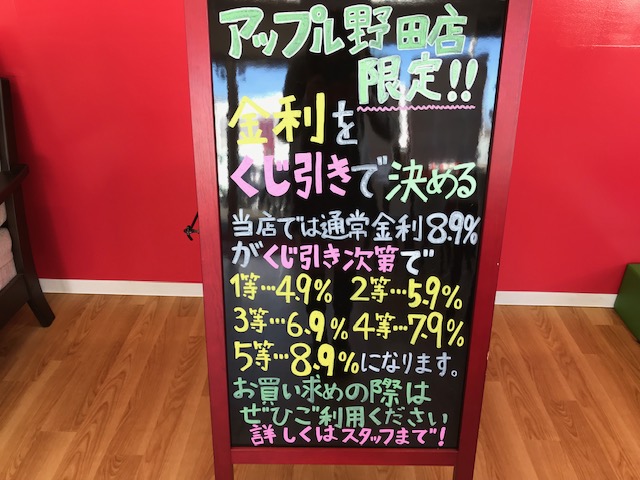 アップル野田店
限定!!
金利を
くじ引きで決める
当店では通常金利8.9%
がくじ引き次第で
1等…4.9% 2等…5.9%
3等…6.9% 4等…7.9%
5等…8.9%になります。
お買い求めの際は
ぜひご利用ください
詳しくはスタッフまで!